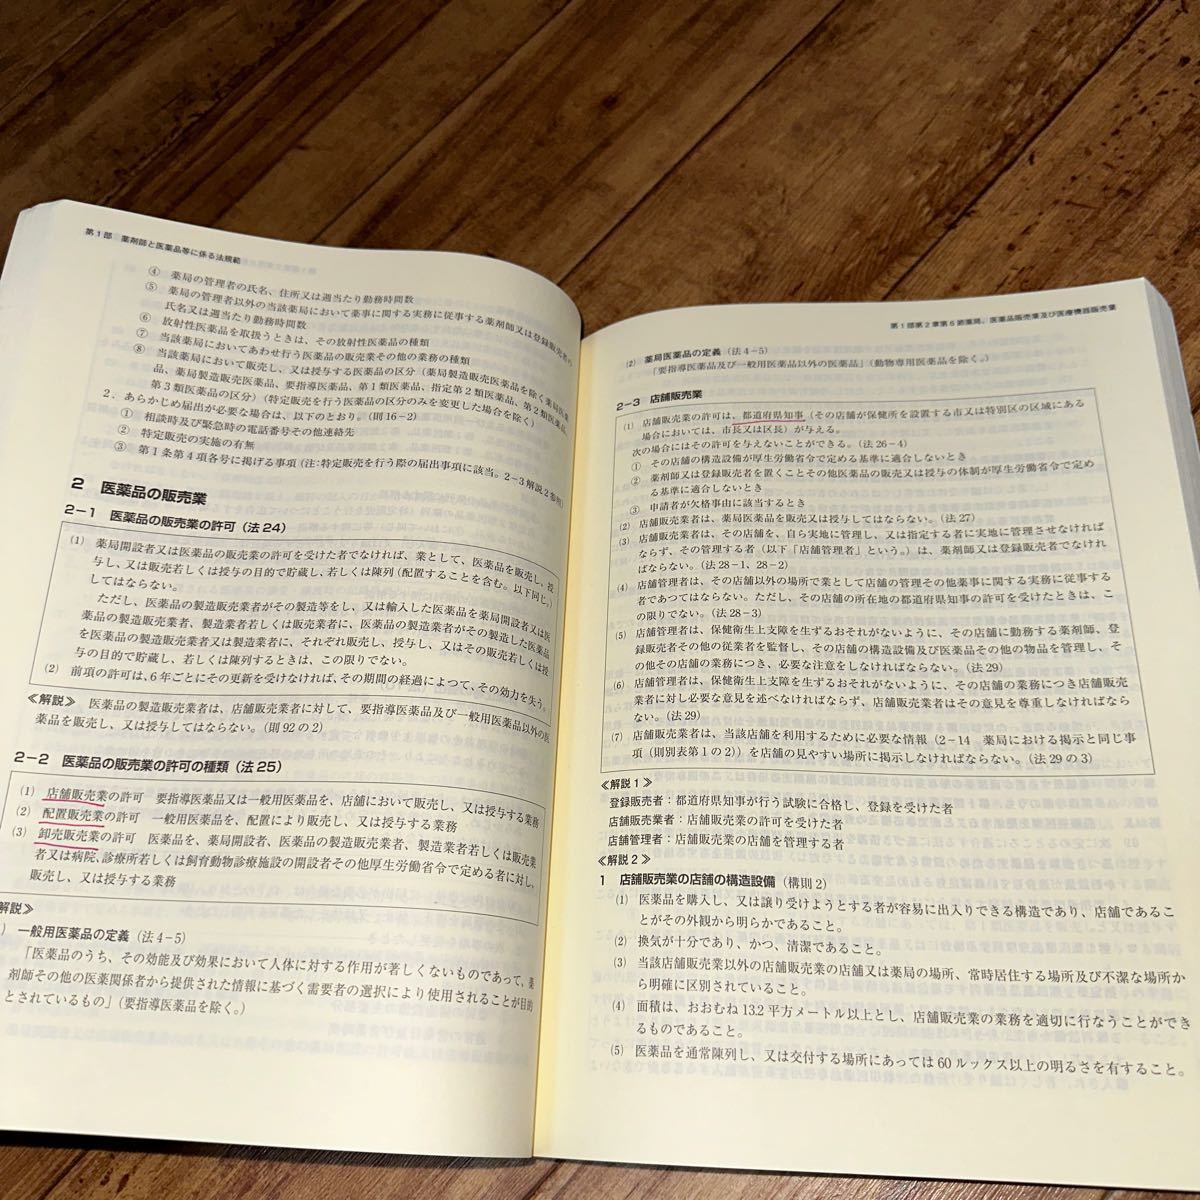 第1部 薬剤師と医薬品等に係る法規範
④ 薬局の管理者の氏名、住所又は週当たり勤務時間数
⑤ 薬局の管理者以外の当該薬局において薬事に関する実務に従事する薬剤師又は登録販売者の
氏名又は週当たり勤務時間数
⑥ 放射性医薬品を取扱うときは、その放射性医薬品の種類
⑦ 当該薬局においてあわせ行う医薬品の販売業その他の業務の種類
⑧ 当該薬局において販売し、又は授与する医薬品の区分（薬局製造販売医薬品を除く薬局医薬
品、薬局製造販売医薬品、要指導医薬品、第1類医薬品、指定第2類医薬品、第2類医薬品、
第3類医薬品の区分）（特定販売を行う医薬品の区分のみを変更した場合を除く）
2．あらかじめ届出が必要な場合は、以下のとおり。（則16－2）
① 相談時及び緊急時の電話番号その他連絡先
② 特定販売の実施の有無
③ 第1条第4項各号に掲げる事項（注：特定販売を行う際の届出事項に該当。2－3解説2参照）
2 医薬品の販売業
2－1 医薬品の販売業の許可（法24）
(1) 薬局開設者又は医薬品の販売業の許可を受けた者でなければ、業として、医薬品を販売し、授
与し、又は販売若しくは授与の目的で貯蔵し、若しくは陳列（配置することを含む。以下同じ。）
してはならない。
ただし、医薬品の製造販売業者がその製造等をし、又は輸入した医薬品を薬局開設者又は医
薬品の製造販売業者、製造業者若しくは販売業者に、医薬品の製造業者がその製造した医薬品
を医薬品の製造販売業者又は製造業者に、それぞれ販売し、授与し、又はその販売若しくは授
与の目的で貯蔵し、若しくは陳列するときは、この限りでない。
(2) 前項の許可は、6年ごとにその更新を受けなければ、その期間の経過によつて、その効力を失う。
≪解説≫ 医薬品の製造販売業者は、店舗販売業者に対して、要指導医薬品及び一般用医薬品以外の医
薬品を販売し、又は授与してはならない。（則92の2）
2－2 医薬品の販売業の許可の種類（法25）
(1) 店舗販売業の許可 要指導医薬品又は一般用医薬品を、店舗において販売し、又は授与する業務
(2) 配置販売業の許可 一般用医薬品を、配置により販売し、又は授与する業務
(3) 卸売販売業の許可 医薬品を、薬局開設者、医薬品の製造販売業者、製造業者若しくは販売業
者又は病院、診療所若しくは飼育動物診療施設の開設者その他厚生労働省令で定める者に対し、
販売し、又は授与する業務
解説≫
) 一般用医薬品の定義（法4－5）
「医薬品のうち、その効能及び効果において人体に対する作用が著しくないものであって、薬
剤師その他の医薬関係者から提供された情報に基づく需要者の選択により使用されることが目的
とされているもの」（要指導医薬品を除く。）
第1部第2章第6節薬局、医薬品販売業及び医療機器販売業
(2) 薬局医薬品の定義（法4－5）
「要指導医薬品及び一般用医薬品以外の医薬品」（動物専用医薬品を除く。）
2－3 店舗販売業
(1) 店舗販売業の許可は、都道府県知事（その店舗が保健所を設置する市又は特別区の区域にある
場合においては、市長又は区長）が与える。
次の場合にはその許可を与えないことができる。（法26－4）
① その店舗の構造設備が厚生労働省令で定める基準に適合しないとき
② 薬剤師又は登録販売者を置くことその他医薬品の販売又は授与の体制が厚生労働省令で定め
る基準に適合しないとき
③ 申請者が欠格事由に該当するとき
(2) 店舗販売業者は、薬局医薬品を販売又は授与してはならない。（法27）
(3) 店舗販売業者は、その店舗を、自ら実地に管理し、又は指定する者に実地に管理させなければ
ならず、その管理する者（以下「店舗管理者」という。）は、薬剤師又は登録販売者でなけれ
ばならない。（法28－1、28－2）
(4) 店舗管理者は、その店舗以外の場所で業として店舗の管理その他薬事に関する実務に従事する
者であつてはならない。ただし、その店舗の所在地の都道府県知事の許可を受けたときは、こ
の限りでない。（法28－3）
(5) 店舗管理者は、保健衛生上支障を生ずるおそれがないように、その店舗に勤務する薬剤師、登
録販売者その他の従業者を監督し、その店舗の構造設備及び医薬品その他の物品を管理し、そ
の他その店舗の業務につき、必要な注意をしなければならない。（法29）
(6) 店舗管理者は、保健衛生上支障を生ずるおそれがないように、その店舗の業務につき店舗販売
業者に対し必要な意見を述べなければならず、店舗販売業者はその意見を尊重しなければなら
ない。（法29）
(7) 店舗販売業者は、当該店舗を利用するために必要な情報（2－14 薬局における掲示と同じ事
項（則別表第1の2））を店舗の見やすい場所に掲示しなければならない。（法29の3）
≪解説1≫
登録販売者：都道府県知事が行う試験に合格し、登録を受けた者
店舗販売業者：店舗販売業の許可を受けた者
店舗管理者：店舗販売業の店舗を管理する者
≪解説2≫
1 店舗販売業の店舗の構造設備（構則2）
(1) 医薬品を購入し、又は譲り受けようとする者が容易に出入りできる構造であり、店舗であるこ
とがその外観から明らかであること。
(2) 換気が十分であり、かつ、清潔であること。
(3) 当該店舗販売業以外の店舗販売業の店舗又は薬局の場所、常時居住する場所及び不潔な場所か
ら明確に区別されていること。
(4) 面積は、おおむね13.2平方メートル以上とし、店舗販売業の業務を適切に行なうことができ
るものであること。
(5) 医薬品を通常陳列し、又は交付する場所にあっては60ルックス以上の明るさを有すること。